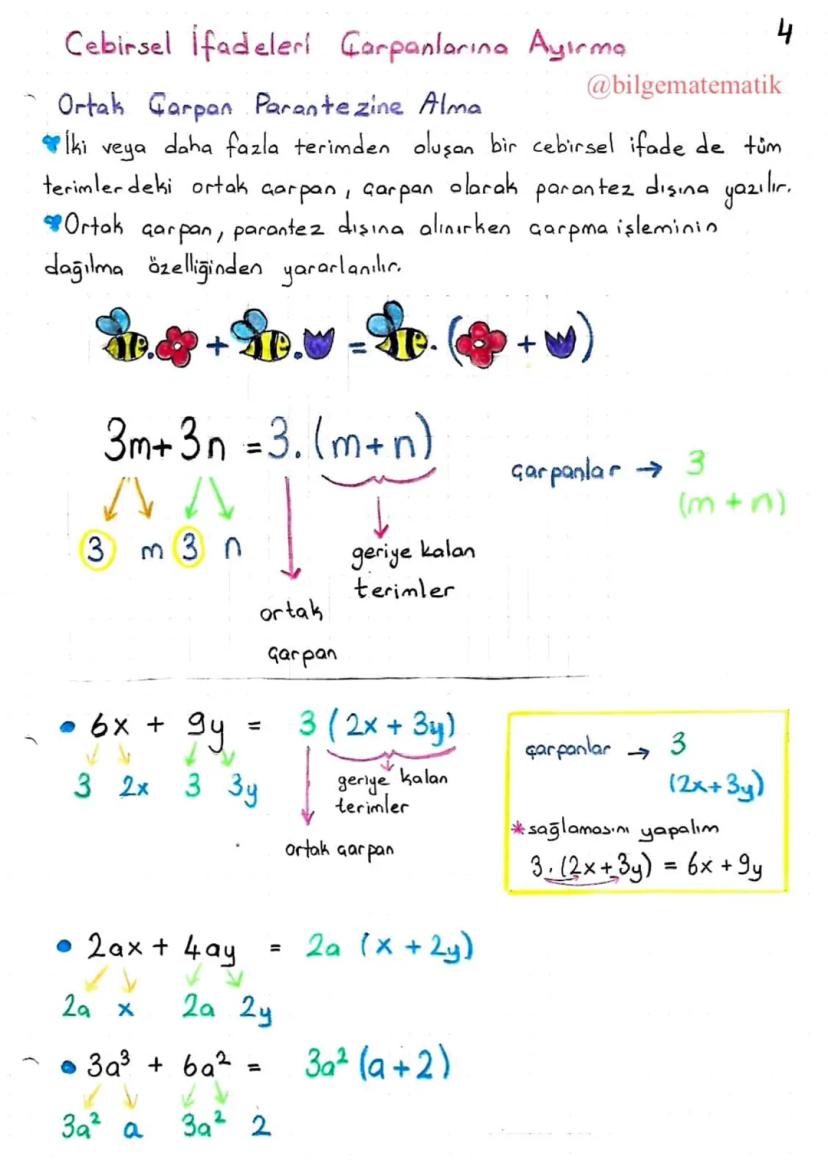 4
Cebirsel İfadeleri Çarpanlarına Ayırma
@bilgematematik
Ortak Çarpan Parantezine Alma
İki veya daha fazla terimden oluşan bir cebirsel ifade de tüm
terimlerdeki ortak çarpan, çarpan olarak parantez dışına yazılır.
Ortak çarpan, parantez dışına alınırken çarpma işleminin
dağılma özelliğinden yararlanılır.
. + . = . ( + )
3m+3n = 3.(m+n)
çarpanlar → 3
(m+n)
3 m 3 n
geriye kalan
terimler
ortak
çarpan
• 6x + 9y = 3(2x + 3y)
3 2x 3 3y
geriye kalan
terimler
ortak çarpan
çarpanlar → 3
(2x+3y)
*sağlamasını yapalım
3.(2x+3y) = 6x + 9y
• 2ax + 4ay = 2a (x + 2y)
2a x 2a 2y
• 3a³ + 6a² = 3a² (a+2)
3a² a 3a² 2